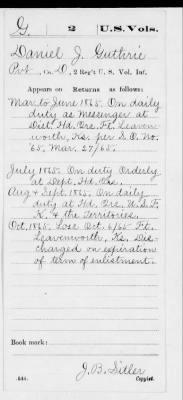 G. 2 U.S. Vols.
Daniel J. Guthrie
Pvt., Co. D, 2 Reg't U. S. Vol. Inf.
Appears on Returns as follows:
Mar. to June 1865. On daily
duty as Messenger at
Dist. Hd. Qrs. Ft. Leaven-
worth, Ks. per S. O. No.
65. Mar. 27/65.
July 1865. On duty Orderly
at Dept. Hd. Qrs.
Aug & Sept. 1865. On daily
duty at Hd. Qrs. U.S.F.
K. & the Territories.
Oct. 1865. Lose Oct. 6/65 Ft.
Leavenworth, Ks. Dis-
charged on expiration
of term of enlistment.
Book mark:
J. B. Sitler
Copyist.